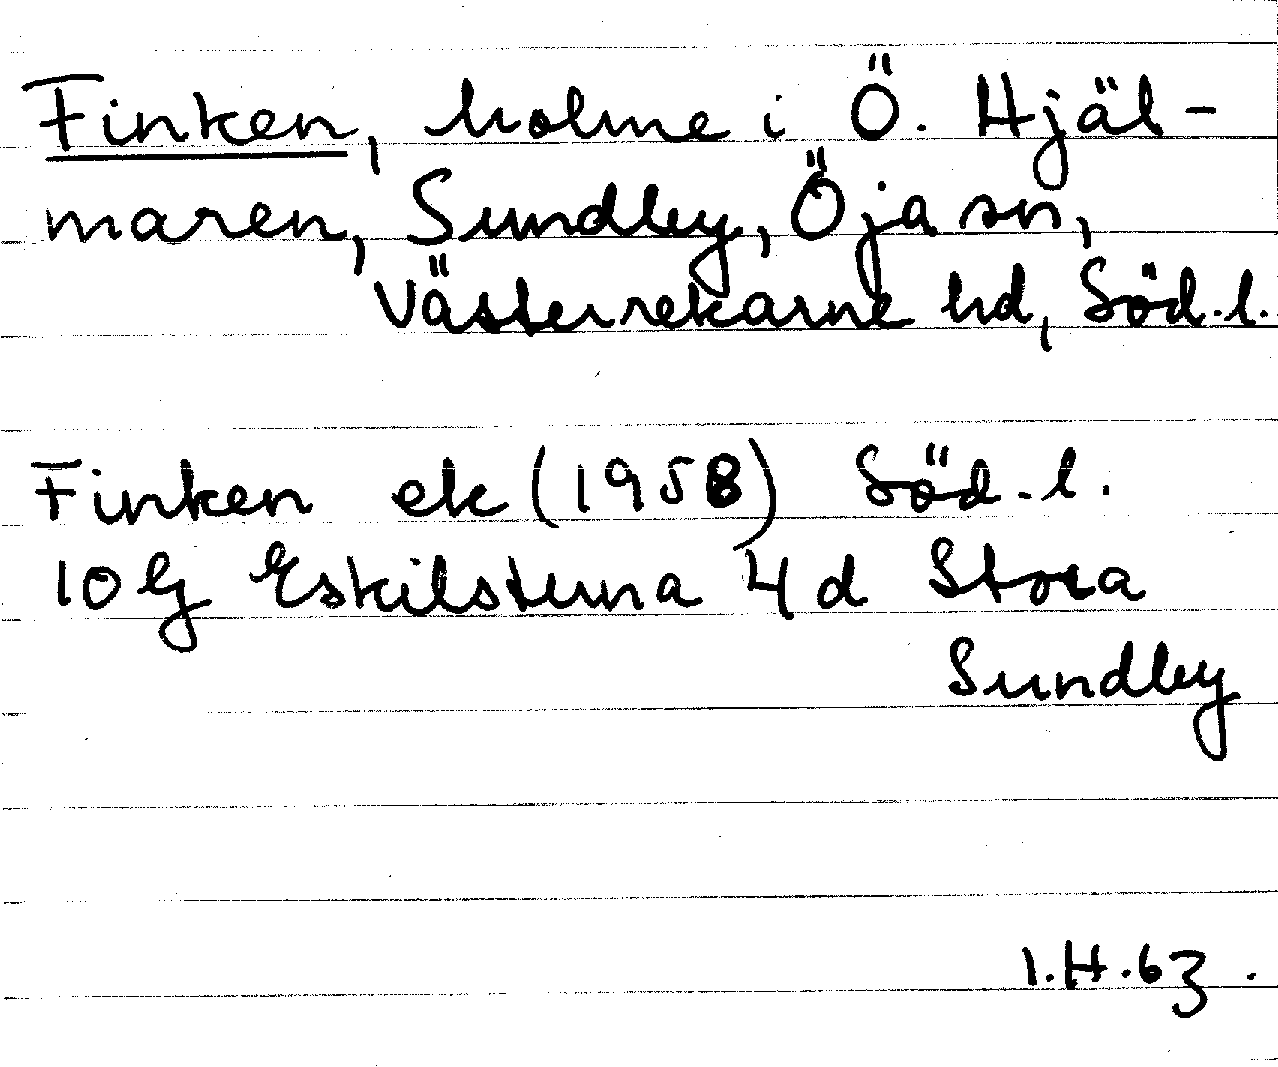 Finken, holme i Ö. Hjäl-
maren, Sundby, Öja sn,
Västerrekarne hd, Söd.l.
Finken ek (1958) Söd.l.
10 G Eskilstuna 4 d Stora
Sundby
I.H.63.